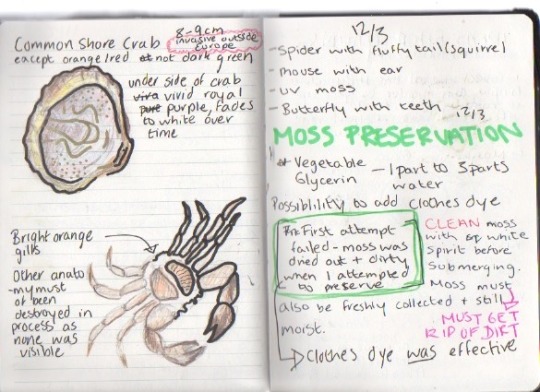 Common Shore Crab
8-9cm
invasive outside
Europe
except orange/red not dark green
under side of crab
viva vivid royal
pure purple, fades
to white over
time
Bright orange
gills
Other anato
-my must
of been
destroyed in
process as
none was
visible
12/3
-Spider with fluffy tail (squirrel)
-mouse with ear
-UV moss
-Butterfly with teeth
12/3
MOSS PRESERVATION
Vegetable
Glycerin
- 1 part to 3 parts
water
Possiblility to add clothes dye
First attempt
failed - moss was
dried out + dirty
when I attempted
to preserve
CLEAN moss
with white
spirit before
submerging.
Moss must
also be freshly collected + still
moist.
MUST GET
RID OF DIRT
Clothes dye was effective